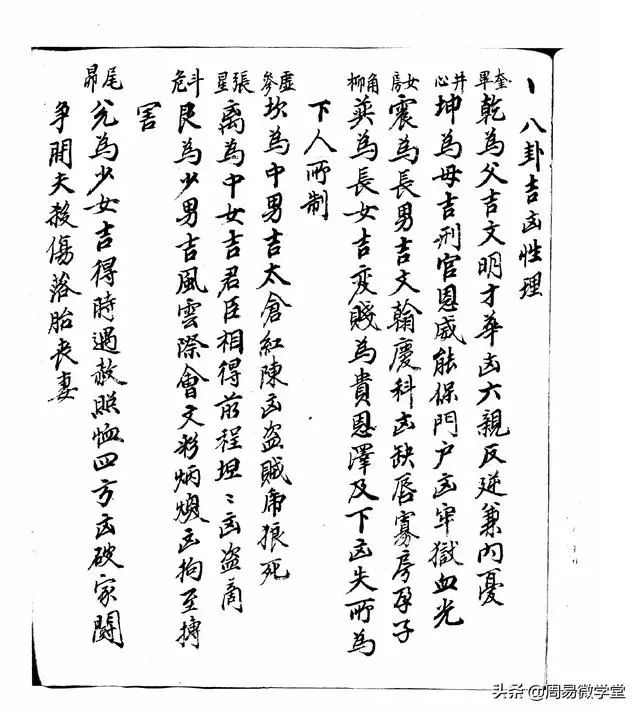 八卦吉凶性理
奎畢 乾為父吉文明才華凶六親反逆兼內憂
井心 坤為母吉刑官恩威能保門户凶牢獄血光
女房 震為長男吉文翰慶科凶缺唇寡房孕子
角柳 巽為長女吉变賤為貴恩澤及下凶失所為
下人所制
虛參 坎為中男吉太倉紅陳凶盜賊虎狼死
張星 离為中女吉君臣相得前程坦〻凶盜
斗危 艮為少男吉風雲際會文彩炳煥凶拘至搏
害
尾昴 兌為少女吉得時遇赦照恤四方凶破家鬪
争開夫殺傷落胎丧妻
头条 @周易微学堂